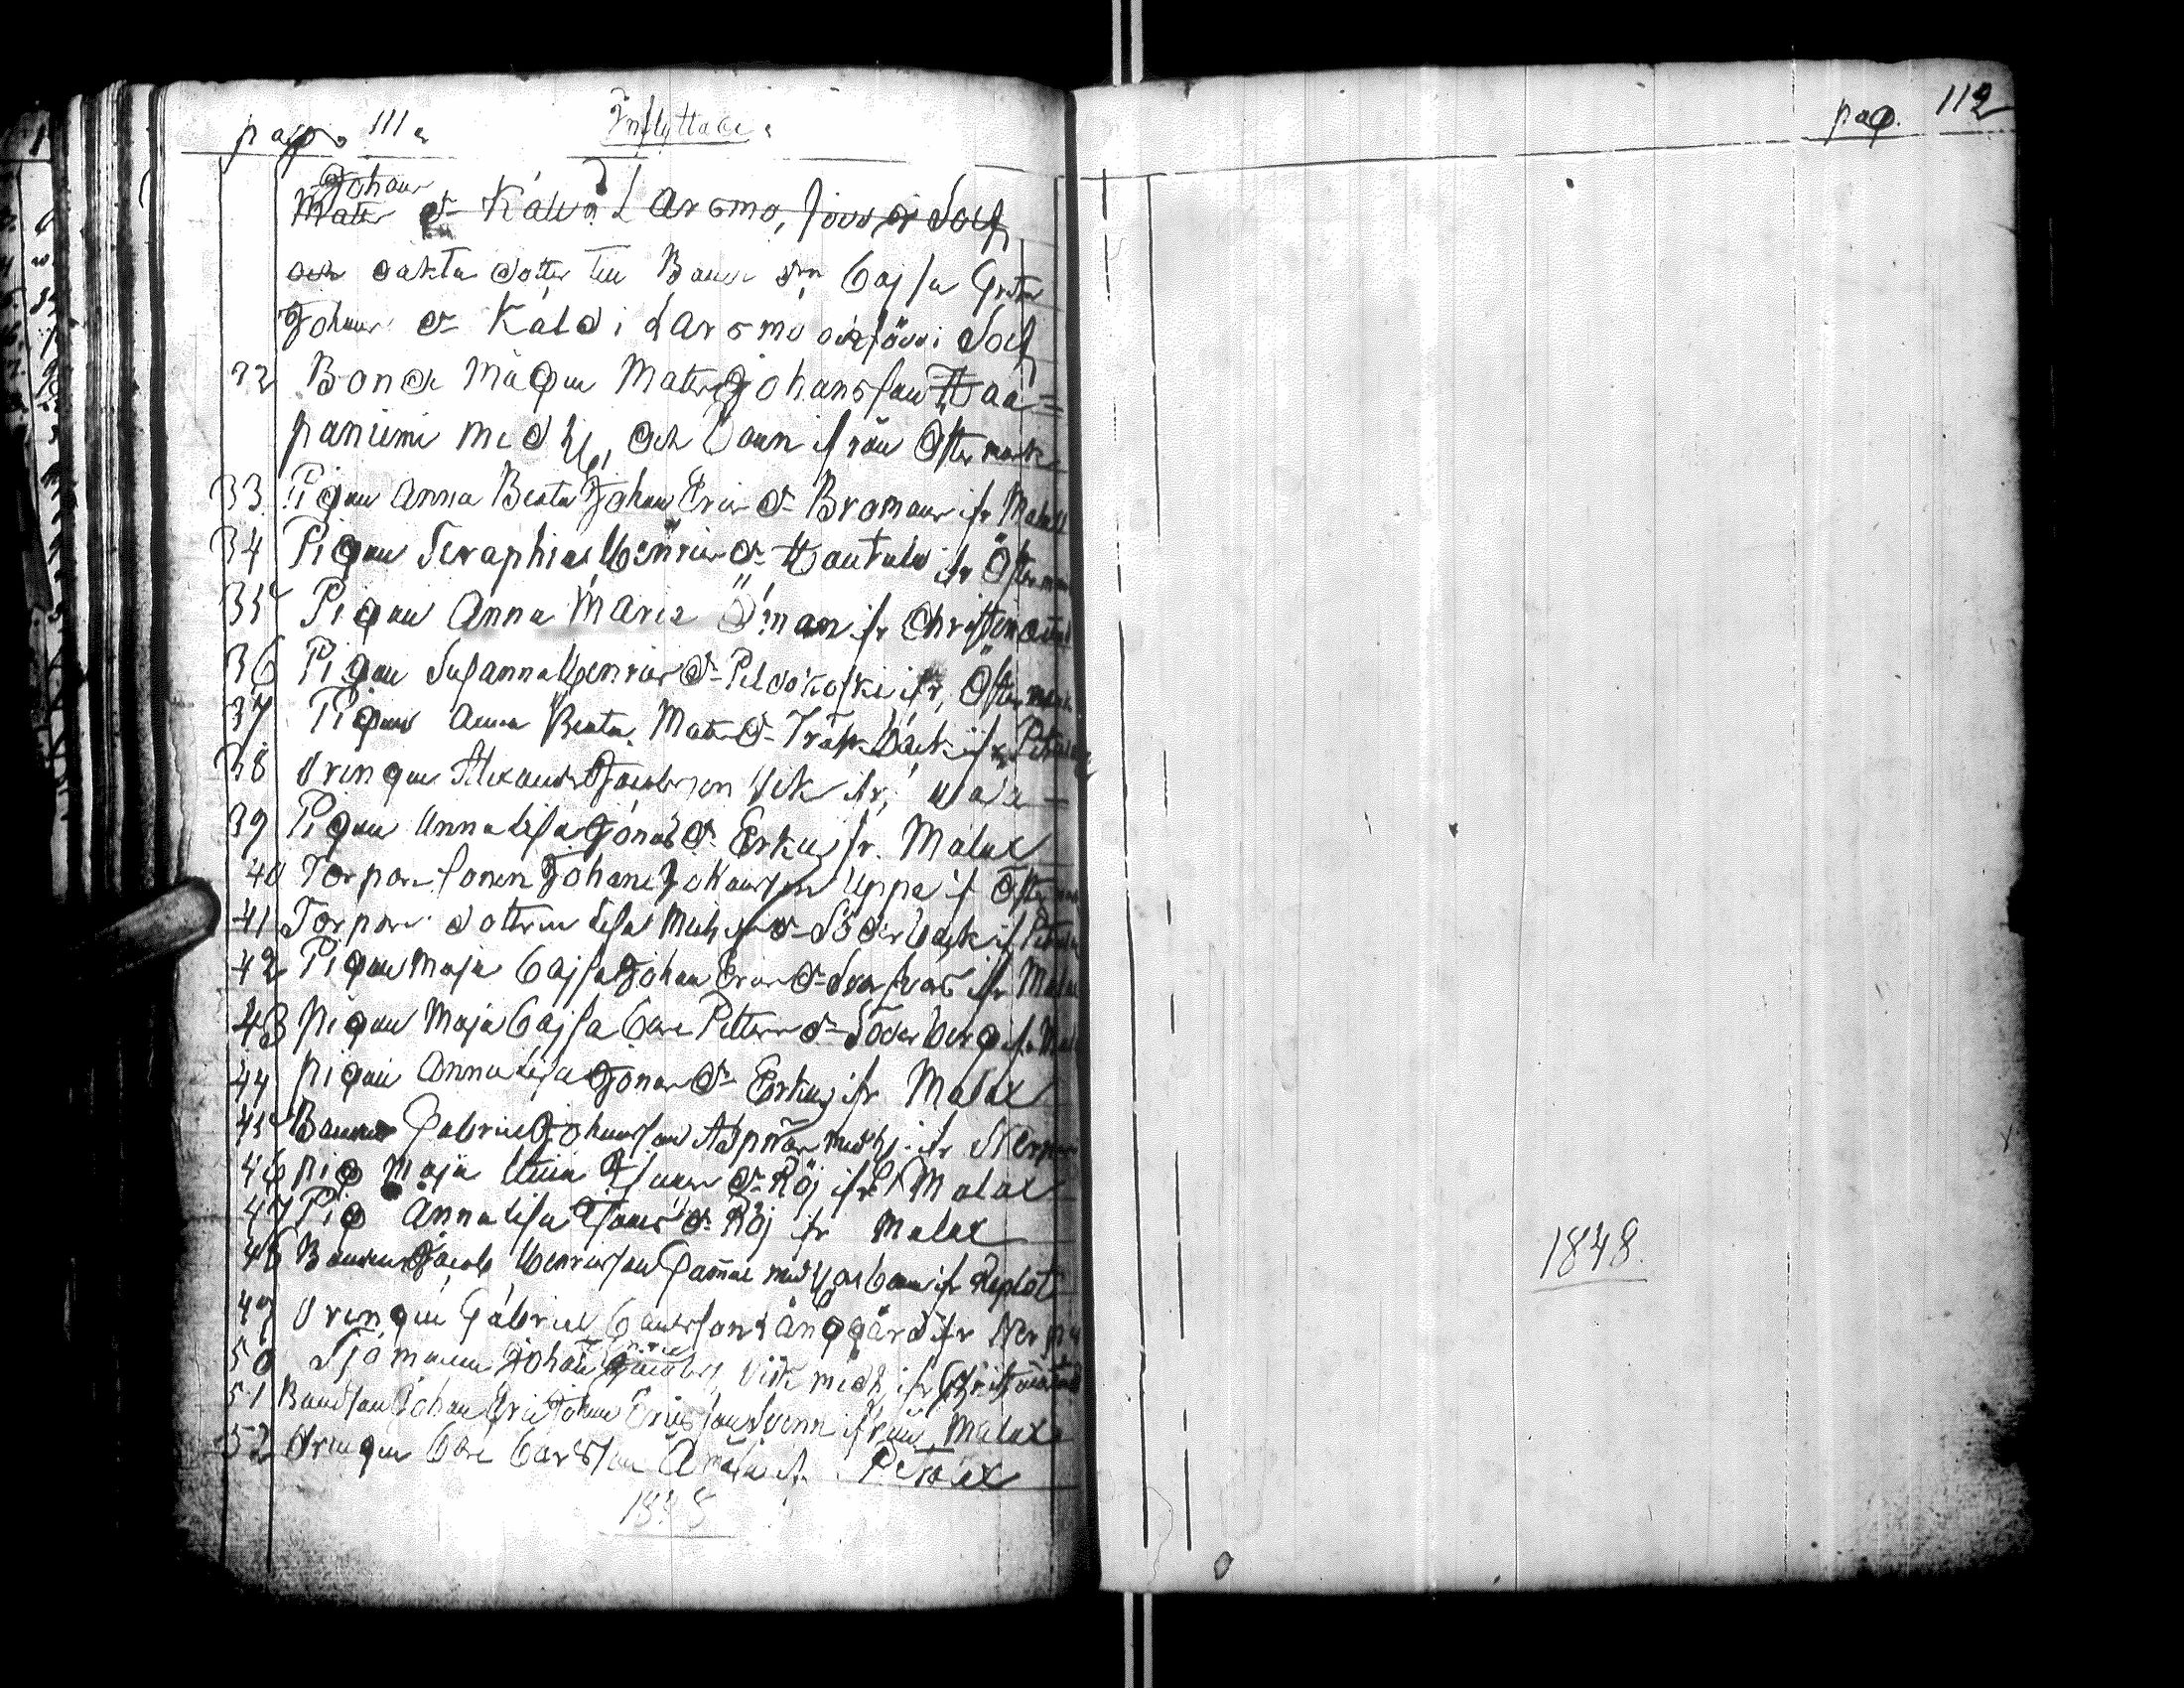 pag. 111.
Inflyttade.
Johan
Matts d:r Kåld Larsmo, född i Solf
och oäkta dotter till Bond d:r Cajsa Greta
Johans d:r Kåld i Larsmo och född i Solf
32 Bonde Mågen Matts Johansson Haa=
paniemi med h. och Barn ifrån Östermark
33. Pigan Anna Beata Johan Ers d:r Broman ifr Malax
34 Pigan Seraphia Henrics d:r Hautala ifr Östermark
35 Pigan Anna Maria Öman ifr Christinæstad
36 Pigan Susanna Henrics d:r Peldokoski ifr, Östermark
37 Pigan Anna Beata Matts d:r Träskbäck ifr Petalax
38 Drengen Alexander Jacobsson Vik ifr,
39 Pigan Anna Lisa Jonas d:r Erkus fr. Malax
40 Torpare sonen Johan Johansson Uppa if Östermark
41 Torpare dottren Lisa Michels d:r Söderback if Petalax
42 Pigan Maja Cajsa Johan Ers d:r Svarfvars ifr Malax
43 Pigan Maja Cajsa Carl Petters d:r Söderberg ifr Malax
44 Pigan Anna Lisa Jonas d:r Erkus ifr Malax
45 Bonden Gabriel Johansson Aspnäs med h. ifr Nerpes
46 Pig Maja Isacs d:r Röj ifr Malax
47 Pig Anna Lisa Isacs d:r Röj fr Malax
48 Bonden Jacob Henricsson Gammal med h och barn ifr Replot
49 Drengen Gabriel Carlsson Långgård ifr Nerpes
50 Sjömannen Johan Jacobss. Vik med h, ifr Christinæstad
51 Bondsonen Johan Eric Johan Ericsson Svenn ifrån Malax
52 Drengen Carl Carlsson ifr. Petalax
1848
pag. 112
1848.